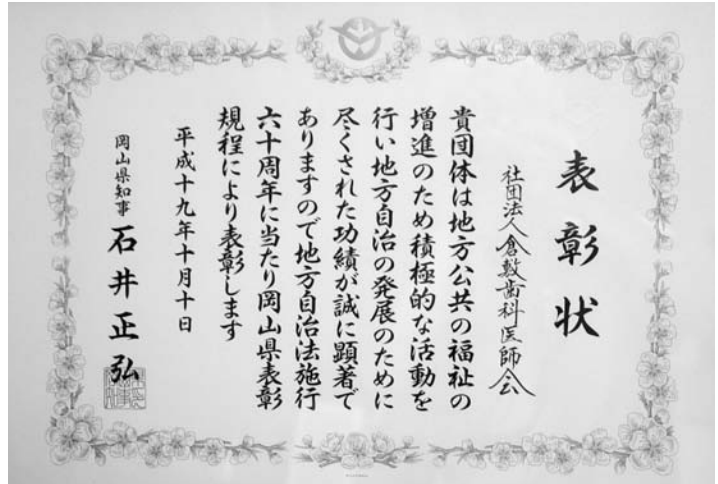 表彰状
社団法人倉敷歯科医師会
貴団体は地方公共の福祉の
増進のため積極的な活動を
行い地方自治の発展のために
尽くされた功績が誠に顕著で
ありますので地方自治法施行
六十周年に当たり岡山県表彰
規程により表彰します
平成十九年十月十日
岡山県知事 石井正弘